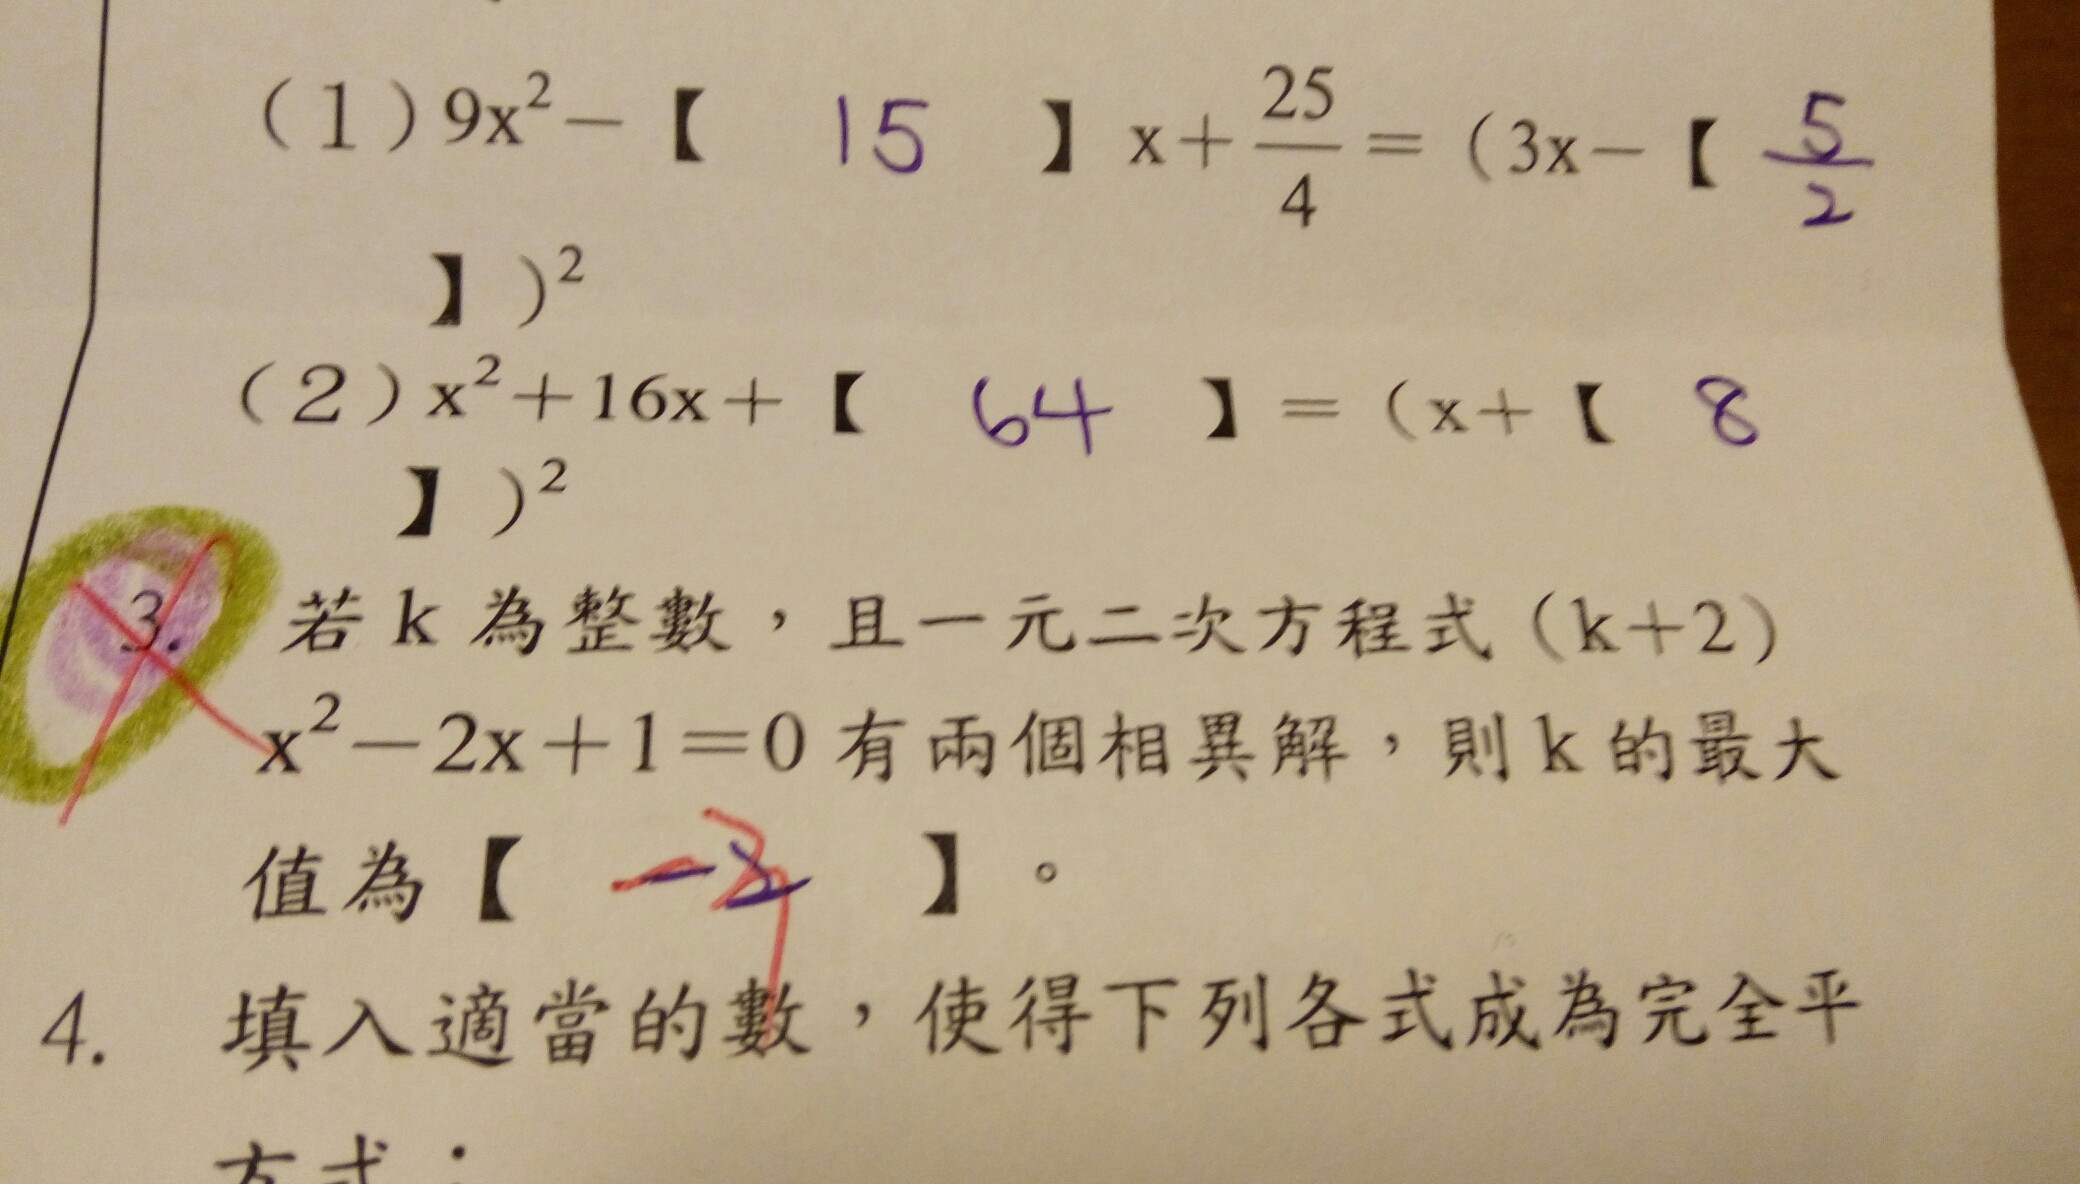 (1) 9x²－【 15 】x＋25/4＝(3x－【 5/2
】)²
(2) x²＋16x＋【 64 】＝(x＋【 8
】)²
3. 若 k 為整數，且一元二次方程式 (k＋2)
x²－2x＋1＝0 有兩個相異解，則 k 的最大
值為【 －3 】。
4. 填入適當的數，使得下列各式成為完全平
方式：